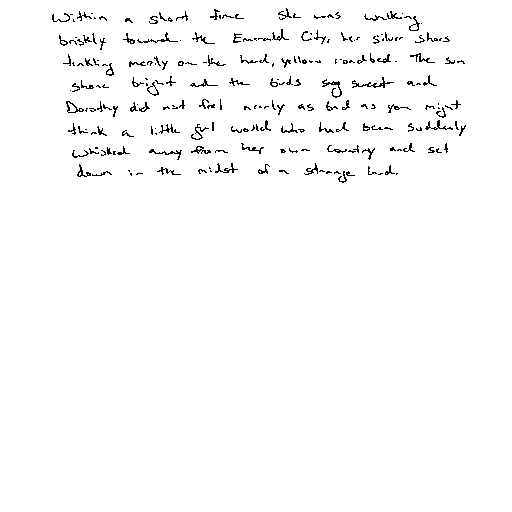 Within a short time she was walking
briskly toward the Emerald City, her silver shoes
tinkling merrily on the hard, yellow roadbed. The sun
shone bright and the birds sang sweet and
Dorothy did not feel nearly as bad as you might
think a little girl would who had been suddenly
whisked away from her own country and set
down in the midst of a strange land.